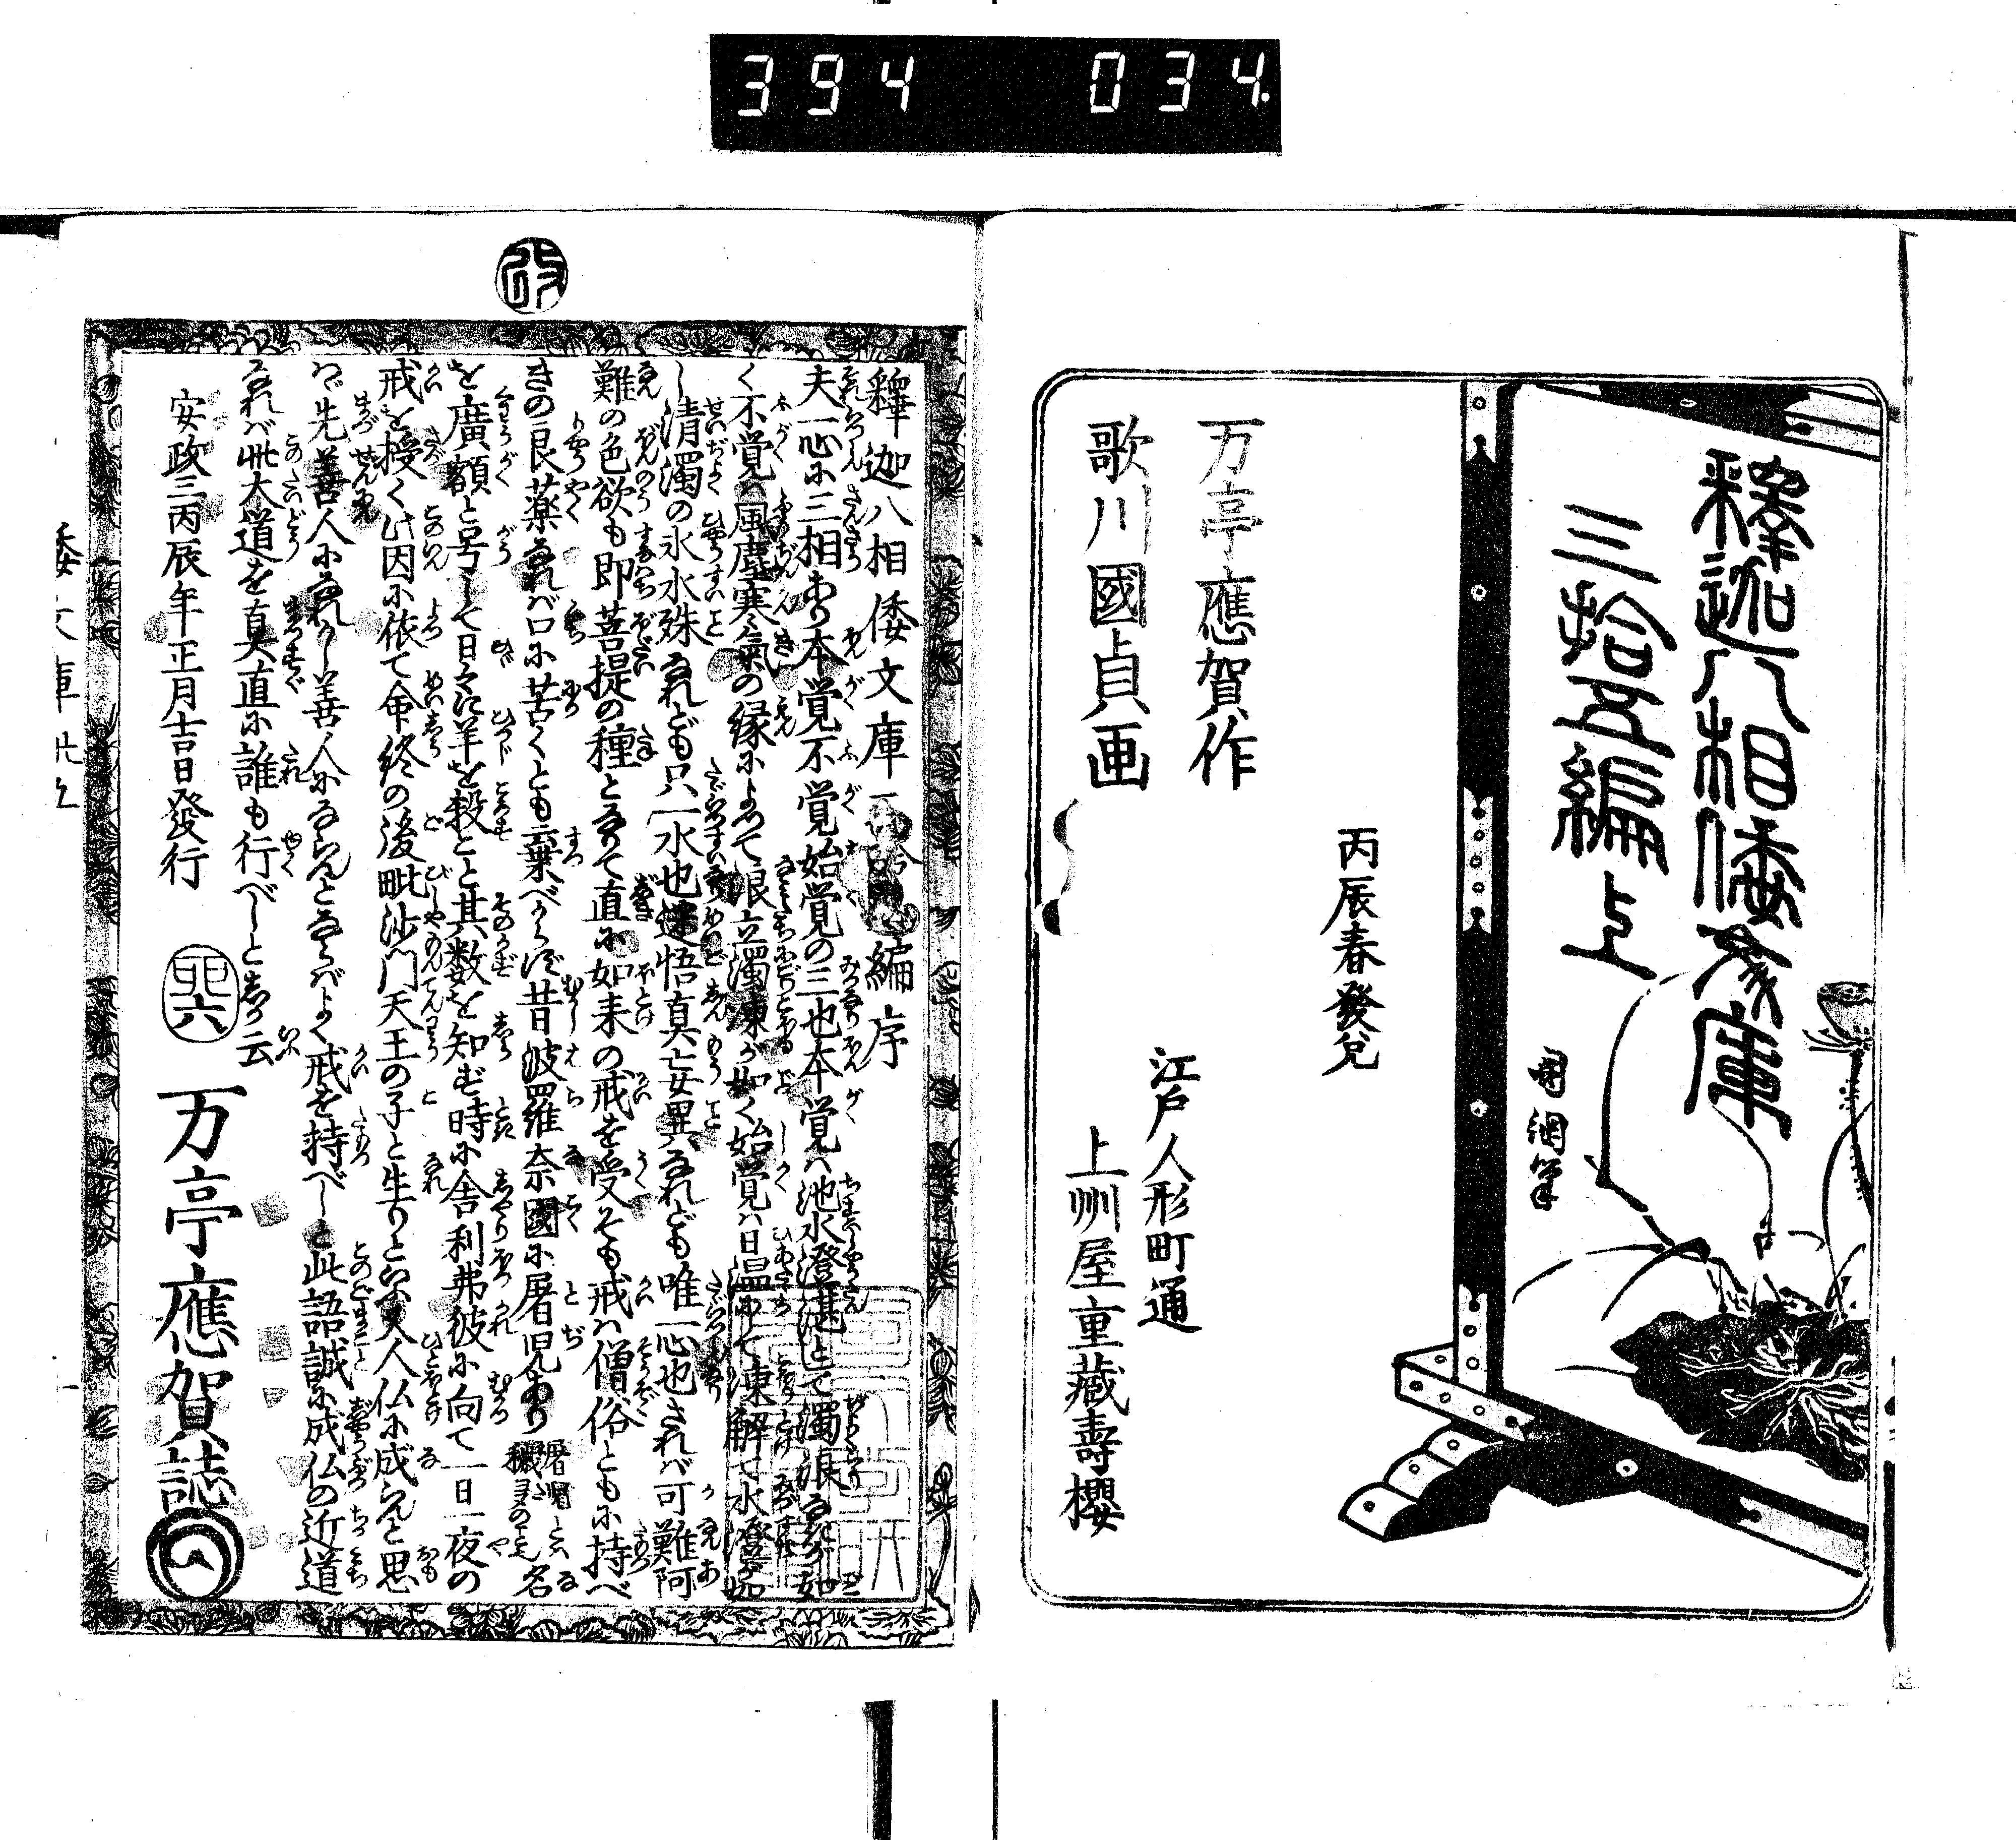 394 034.
釋迦八相倭文庫
三拾五編上
国綱筆
丙辰春發兌
万亭應賀作
歌川國貞画
江戸人形町通
上州屋重藏壽櫻
改
釋迦八相倭文庫三 編序
夫一心に三相あり本覚不覚始覚の三也本覚ハ池水澄湛として濁浪なきが如
く不覚ハ風塵寒氣の縁によつて浪立濁凍が如く始覚ハ日温にて凍解て水澄が如
し清濁の水水殊なれども只一水也迷悟真妄異なれども唯一心也されバ可難阿
難の色欲も即菩提の種となりて直に如来の戒を受そも戒ハ僧俗ともに持べ
きの良薬なれバ口に苦くとも棄べからず昔波羅奈國に屠児あり 名
を廣額と号して日々に羊を殺こと其数を知ず時に舎利弗彼に向て一日一夜の
戒を授く此因に依て命終の後毗沙門天王の子と生りといふ人人仏に成んと思
はゞ先善人になれかし善人にならんとならばよく戒を持べしと此語誠に成仏の近道
なれバ此大道を真直に誰も行べしと云
安政三丙辰年正月吉日發行
万亭應賀誌
倭文庫